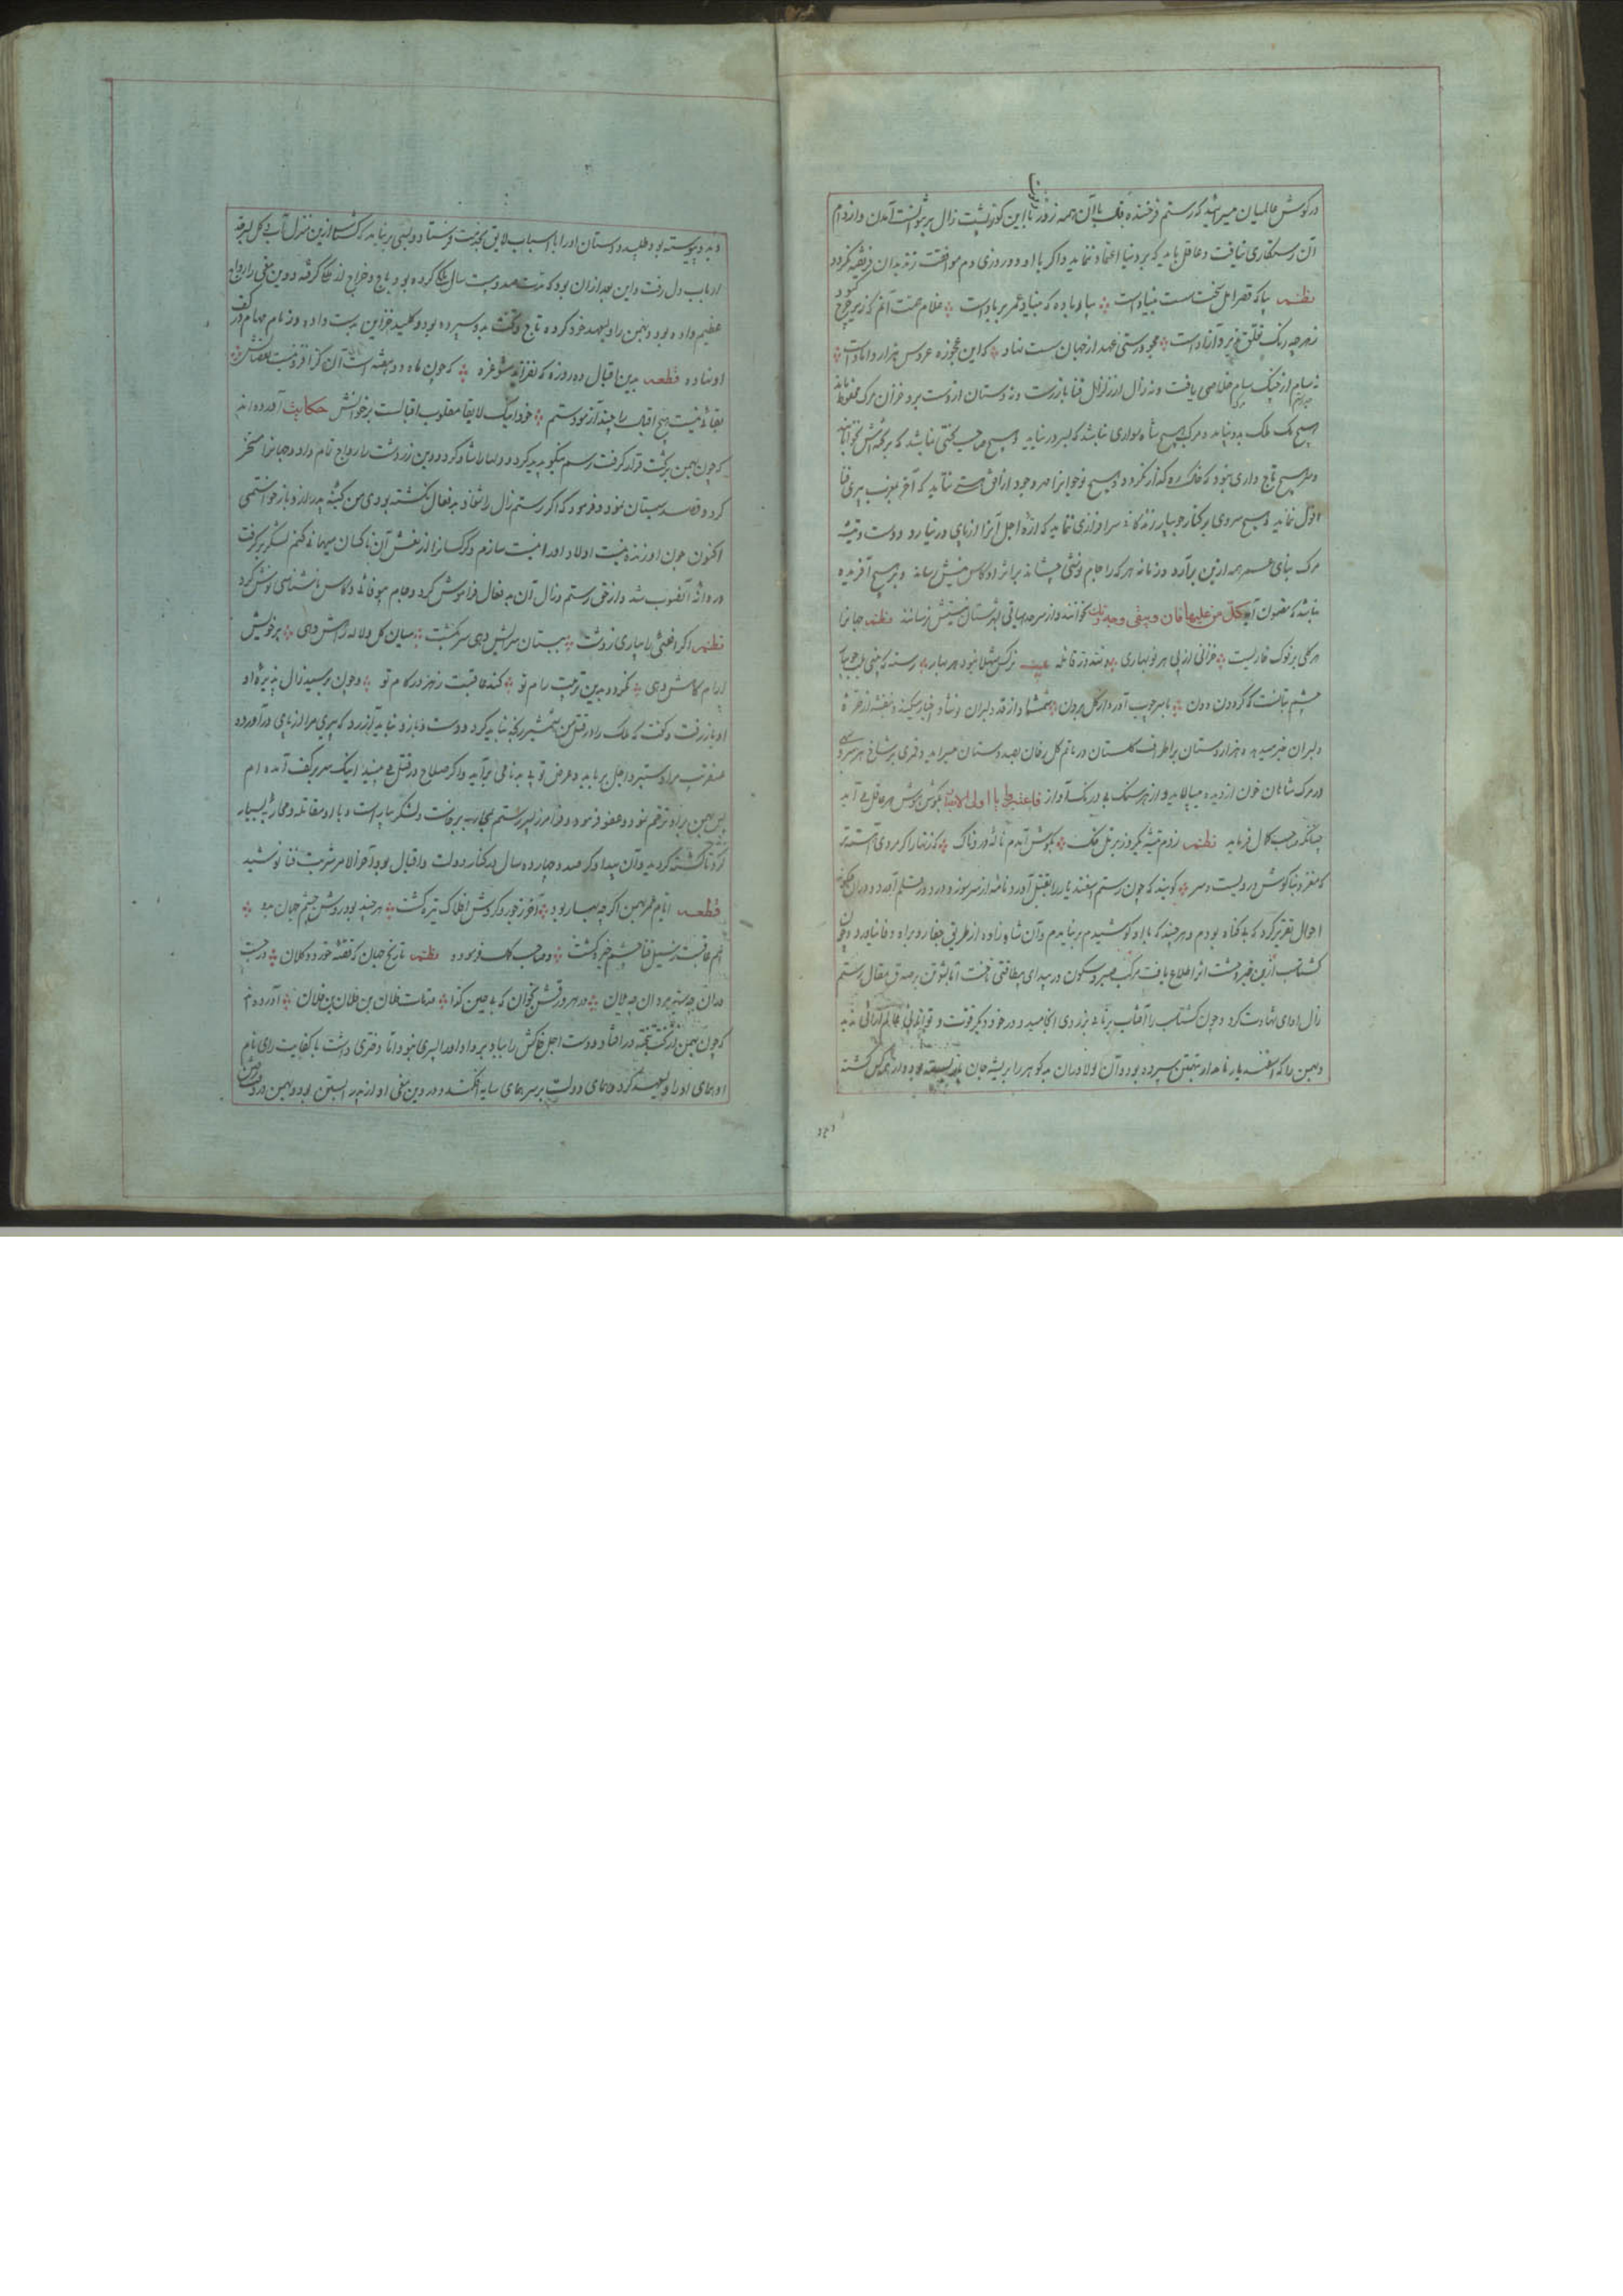 در گوش عالمیان میرساند که رستم فرخنده فلک با آن همه زور با این کوژپشت زال بر نتوانست آمدن و از دام
آن رستگاری نیافت و عاقل باید که بر دنیا اعتماد ننماید و اگر با او دو روزی دم موافقت زند بدان فریفته نگردد
نظم بیا که قصر امل سخت سست بنیادست بیار باده که بنیاد عمر بر بادست غلام همت آنم که زیر چرخ کبود
ز هر چه رنگ تعلق پذیرد آزادست مجو درستی عهد از جهان سست نهاد که این عجوزه عروس هزار دامادست
نه سام از چنگ سهام خلاصی یافت و نه زال از زلزال فنا باز رست و نه دستان از دست برد خزان مرگ محفوظ ماند
هیچ ملک بدو نپاید و مرکب هیچ شاه سواری نباشد که بسر در نیاید و هیچ صاحب تختی نباشد که بر تخته اش نخوابانند
و سر هیچ تاج داری نبود که خاک ره گذار نگردد و هیچ نوجوانرا مهر وجود از افق نتابد که آخر بمغرب پیری فنا
افول ننماید و هیچ سروی بر کنار جویبار زندگانی سرافرازی ننماید که ازه اجل آنرا از پای در نیارد و دست و تیشه
مرگ بنای عمر همه از بن برآرد و زمانه هر که را جام نوشی چشاند بر اثر او کاس نیش رساند و بر هیچ آفریده
نباشد که مضمون آیه کل من علیها فان و یبقی وجه ربک نخوانند و از سرحد بهاقی بشهرستان نیستیش نرسانند نظم جهانرا
هر گلی بر نوک خاریست خزانی از پی هر نوبهاری بیت نرگس شهلا نبود هر بهار رسته که بینی بلب جویبار
چشم بتانست که گردون دون بر سر چوب آورد از گل برون شمشاد از قد دلبران نوشاد اخبار میکند و بنفشه از طره
دلبران خبر میدهد هزاردستان بر اطراف گلستان در ماتم گل رخان بصد دستان میسراید و قمری بر شاخ هر سروی
در مرگ شاهان خون از دیده میپالاید و از هر سنگ بی درنگ آواز فاعتبروا یا اولی الابصار بگوش هوش هر عاقل می آید
چنانکه صاحب کمال فرماید نظم زدم تیشه یکروز بر تل خاک بگوش آمدم ناله دردناک که زنهار اگر مردی آهسته تر
که مغز و بناگوش و رویست و سر گویند که چون رستم اسفندیار را بقتل آورد نامه از سر سوز و درد در قلم آورد
احوال تقریر کرد که بی گناه بودم و هر چند که با او کوشیدم بر نیامدم و آن شاه زاده از طریق جفا رو براه وفا نیاورد و چون
گشتاسب ازین خبر وحشت اثر اطلاع یافت مرکب صبر و سکون در بیدای بیطاقتی تاخت اما بشوتن بر صدق مقال رستم
زال ادای شهادت کرد و چون گشتاسب را آفتاب برنائی بزردی انجامید و در خود دیگر قوت و توانائی جهانبانی ندید
و بهمن را که اسفندیار نامدار بتهمتن سپرده بود و آن دلاوران بدگوهر را برشته جان
و بدو پیوسته بود طلبید و دستان او را با اسباب لایق بخدمت فرستاد و بسی بر نیامد که گشتاسب ازین منزل آب و گل
ارباب دل رفت و این بعد از آن بود که مدت صد و بیست سال ملک کرده بود و باج و خراج از ملک گرفته و دین مغی را رواج
عظیم داده بود و بهمن را ولیعهد خود کرده و تاج و تخت بدو سپرده بود و کلید خزاین بدست داده و زمام مهام در کف
او نهاده قطعه بدین اقبال ده روزه که نفزاید مشو غره که چون ماه دو هفته است آن کز افزونیست نقصانش
بقائی نیست هیچ اقبال را چند آزمودستم خود اینک لابقا مقلوب اقبالست بر خوانش حکایت آورده اند
که چون بهمن بر تخت قرار گرفت رسم نیکو پدید کرد و دلها را شاد کرد و دین زردشت را رواج تمام داد و جهانرا مسخر
کرد و قصد سیستان نمود و فرمود که اگر رستم زال را شغاد بد فعال نکشته بودی من کینه پدر از او باز خواستمی
اکنون چون او زنده نیست اولاد او را نیست سازم و کرکسانرا از نعش آن ناکسان میهمانی کنم لشکر بر گرفت
و روانه آنصوب شد و از حق رستم و زال آن بد فعال فراموش کرد و جام بیوفائی و کاس ناشناسی نوش کرد
نظم اگر افعئی را بیاری ز دشت سیستان سرایش دهی سرگذشت میان گل و لاله رامش دهی بر خویش
آرام کامش دهی نگردد بدین تربیت رام تو کند عاقبت زهر در کام تو و چون برسید زال پذیره او
او باز رفت و گفت که ملک را در قتل من شمشیر رنجه نباید کرد و دست و بازو نباید آزرد که پیری مرا از پای درآورده
عنقریب مرا دستبرد اجل برباید و غرض تو بی بدنامی برآید و اگر صلاح در قتل می بیند اینک سر بر کف آمده ام
پس بهمن بر او ترحم نمود و عفو فرمود و فرامرز پسر رستم بحرب برخاست و لشکر بیاراست و با او مقاتله و محاربه بسیار
کرد تا کشته گردید و آن بیدادگر صد و چهارده سال در کنار دولت و اقبال بود آخر الامر شربت فنا نوشید
قطعه ایام عمر بهمن اگر چه بهار بود آخر ز جور گردش افلاک تیره گشت هر چند بود روشن چشم جهان بدو
هم عاقبت ز سیل فنا چشم خیره گشت و صاحب کمال فرموده نظم تاریخ جهان که قصه خورد و کلان
در هر ورقش بخوان که فی حین کذا قد مات فلان بن فلان بن فلان آورده اند
که چون بهمن از تخت بتخته در افتاد و دست اجل خاکش را بباد برداد او را پسری نبود اما دختری داشت با کفایت رای نام
او همای او را ولیعهد کرد و همای دولت بر سر همای سایه افکند و در دین مغی او از پدر آبستن بود و بهمن